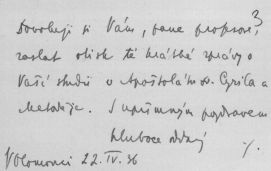 Dovoluji si Vám, pane profesore,
zaslat otisk té krátké zprávy o
Vaší studii o Apoštolám sv. Cyrila a
Metoděje. S upřímným pozdravem
hluboce oddaný
V Olomouci 22. IV. 36